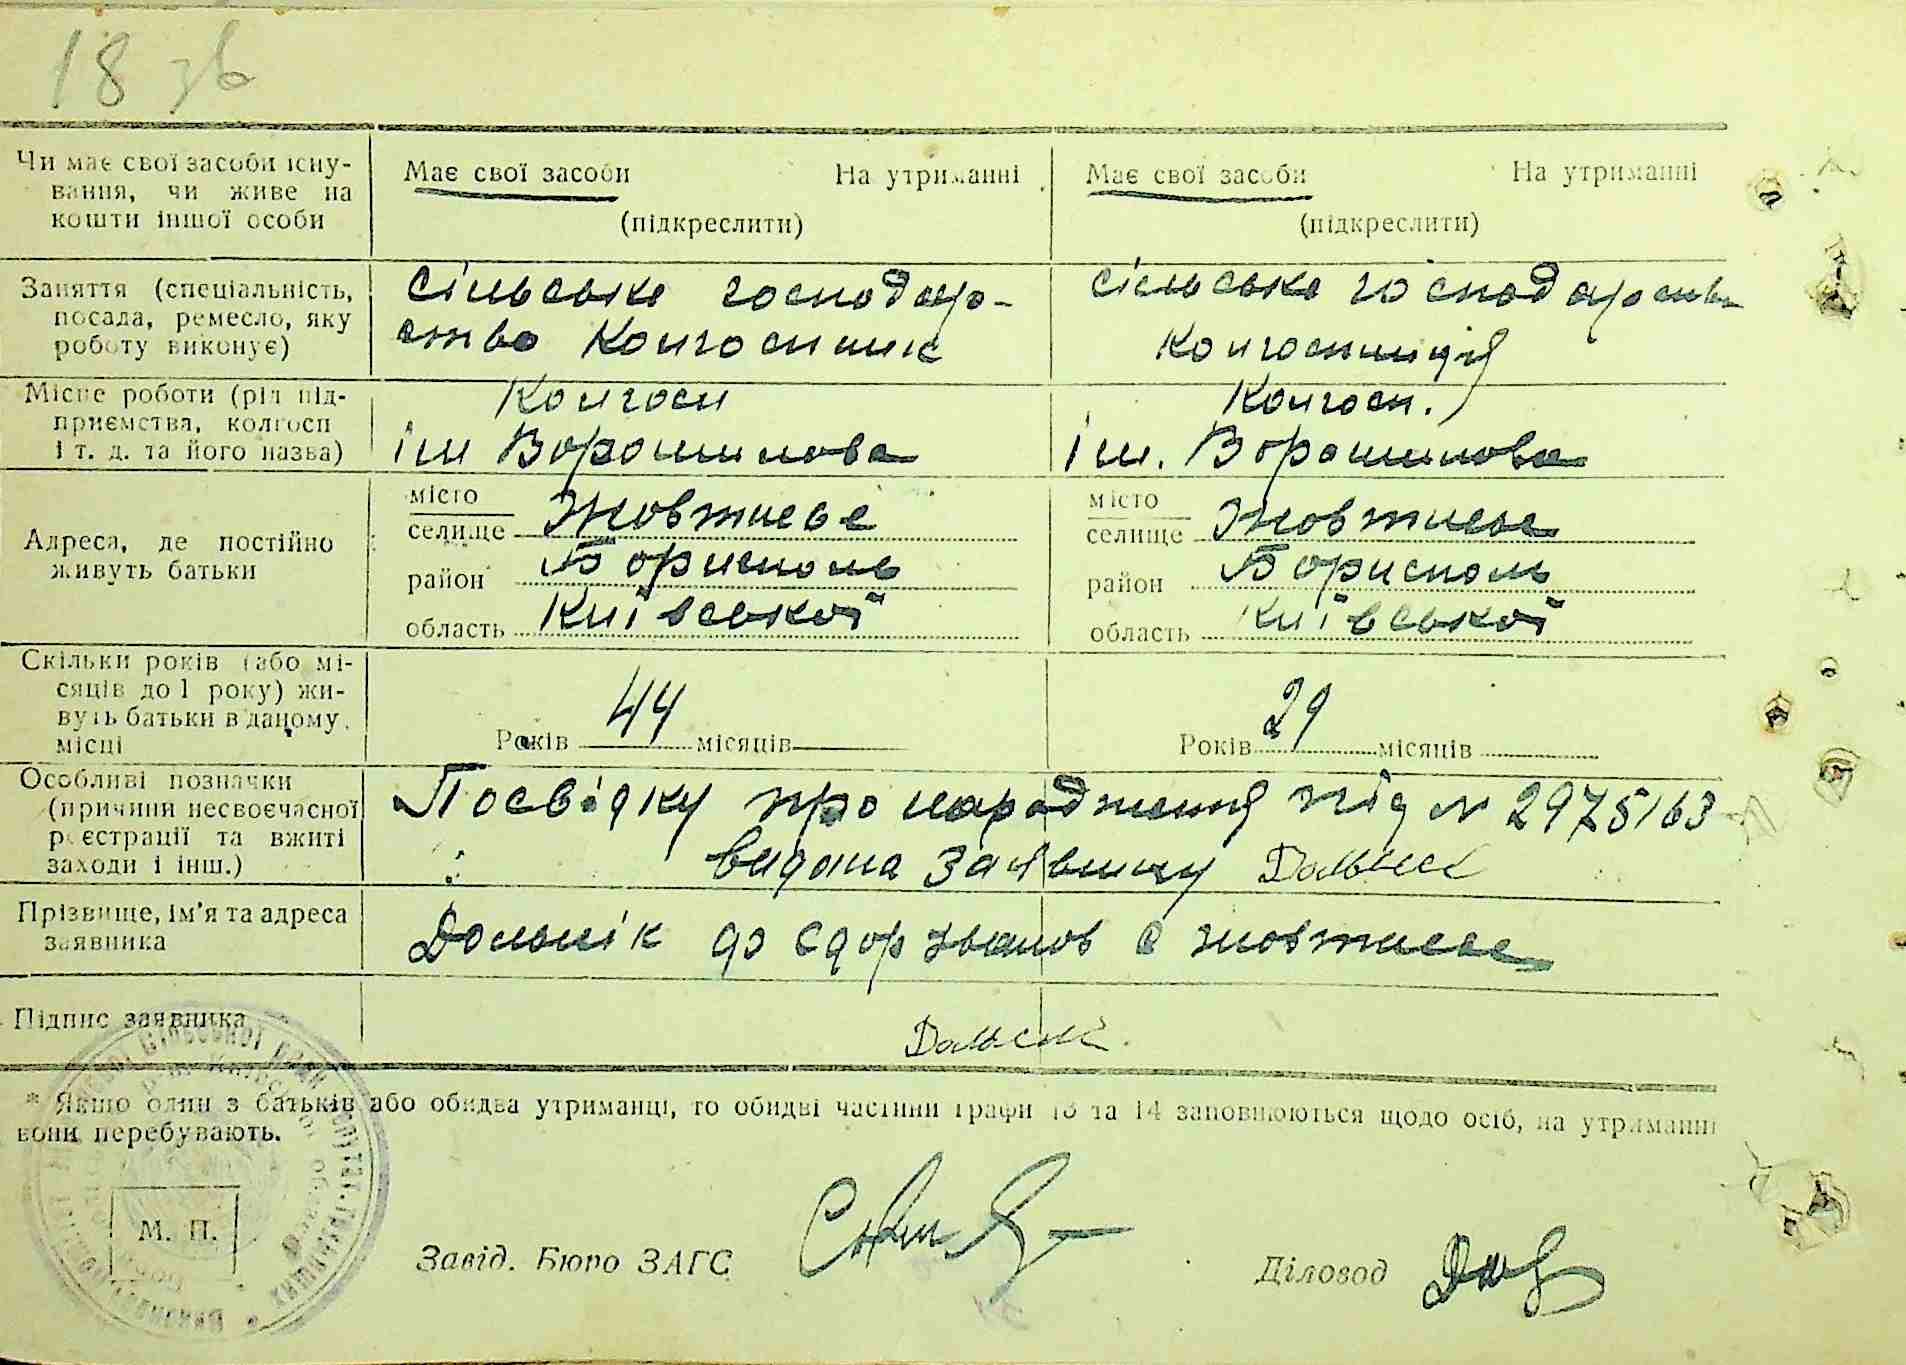 18 зв
Чи має свої засоби існу-
вання, чи живе на
кошти іншої особи
Має свої засоби На утриманні
(підкреслити)
Має свої засоби На утриманні
(підкреслити)
Заняття (спеціальність,
посада, ремесло, яку
роботу виконує)
сільське господар-
ство колгоспник
сільське господарство
колгоспниця
Місце роботи (рід під-
приємства, колгосп
і т. д. та його назва)
Колгосп
ім Ворошилова
Колгосп.
ім. Ворошилова
Адреса, де постійно
живуть батьки
місто
селище Жовтневе
район Бориспіль
область Київської
місто
селище Жовтневе
район Бориспіль
область Київської
Скільки років (або мі-
сяців до 1 року) жи-
вуть батьки в даному
місці
Років 44 місяців
Років 29 місяців
Особливі позначки
(причини несвоєчасної
реєстрації та вжиті
заходи і інш.)
Посвідку про народження під № 2975163
видана заявнику
Прізвище, ім'я та адреса
заявника
с Жовтневе
Підпис заявника
* Якщо один з батьків або обидва утриманці, то обидві частини графи 13 та 14 заповнюються щодо осіб, на утриманні
вони перебувають.
М. П.
Завід. Бюро ЗАГС
Діловод